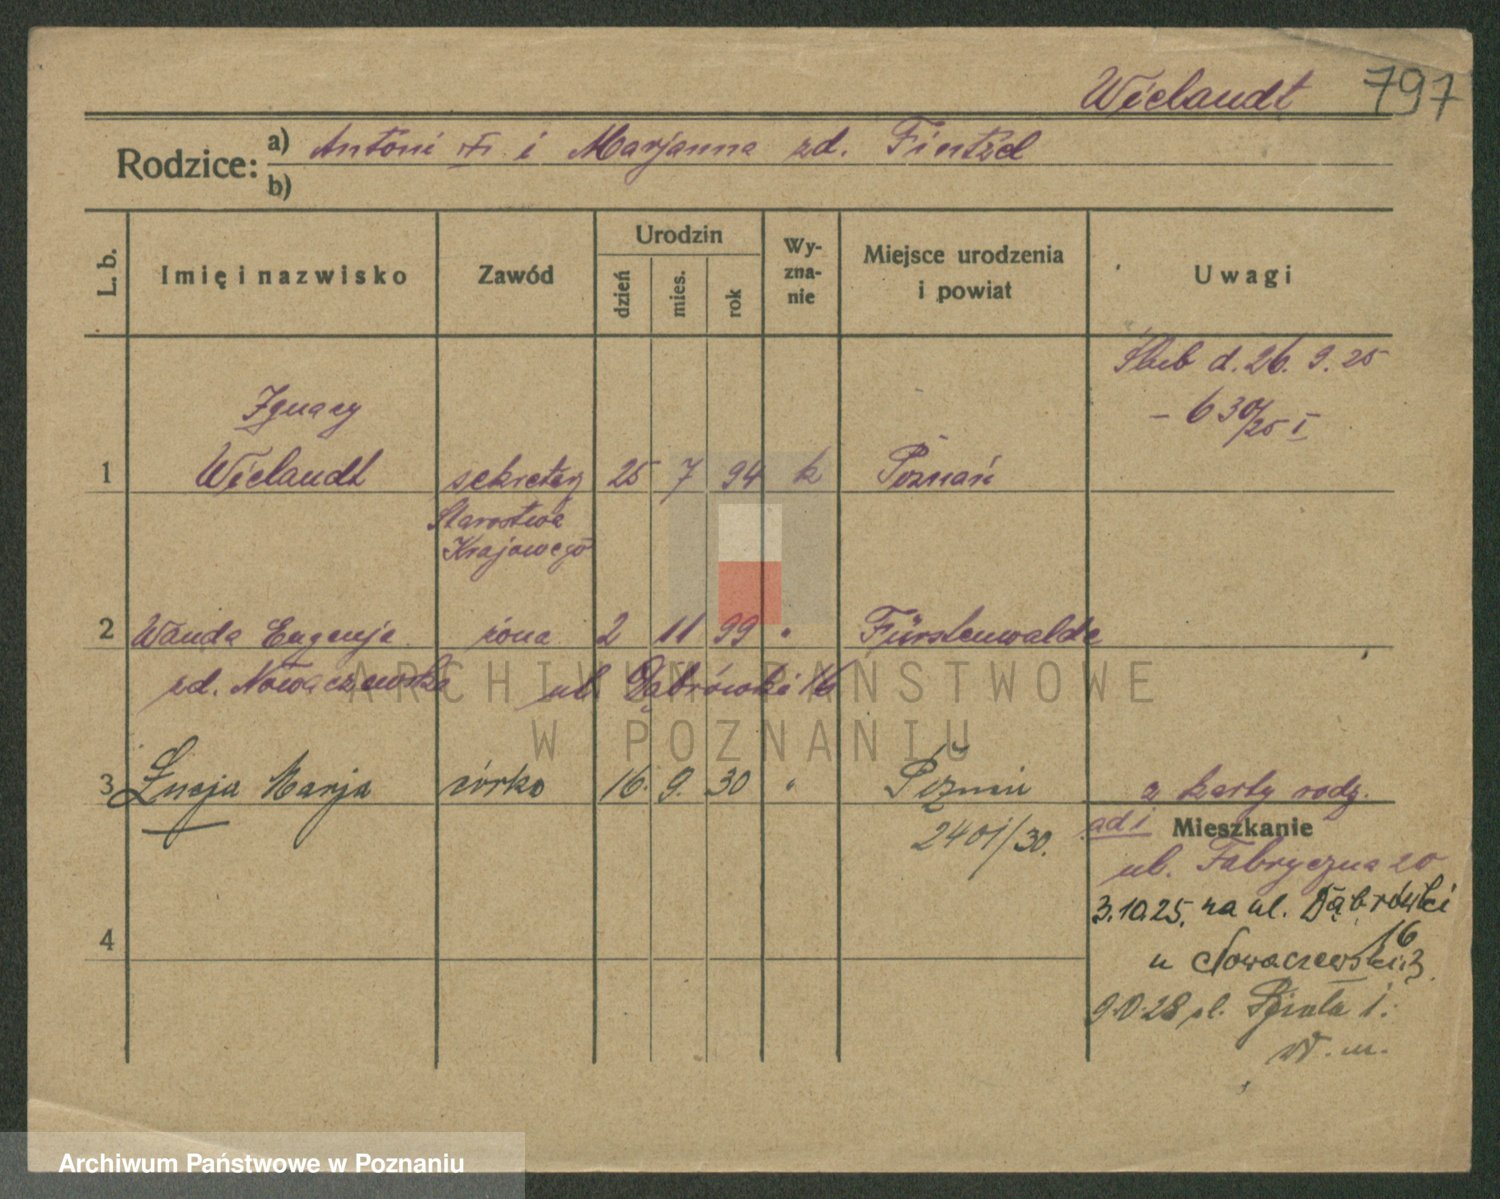 Wielandt 797
Rodzice: a) Antoni i Marjanna zd.
b)
L. b.
Imię i nazwisko
Zawód
Urodzin
dzień
mies.
rok
Wy-
zna-
nie
Miejsce urodzenia
i powiat
Uwagi
Ślub d. 26. 9. 25
Ignacy
1 Wielandt sekretarz 25 7 94 k Poznań
Starostwa
Krajowego
2 Wanda Eugenja żona 2 11 99 " Fürstenwalde
zd. Nowaczewska ul. Dąbrówki 16
3 Łucja Marja córka 16. 9. 30 " Poznań
z karty rodz.
2401/30.
ad 1 Mieszkanie
ul. Fabryczna 20
3.10.25. na ul. Dąbrówki
16
u Nowaczewskich
4
W. m.
ARCHIWUM PAŃSTWOWE
W POZNANIU
Archiwum Państwowe w Poznaniu